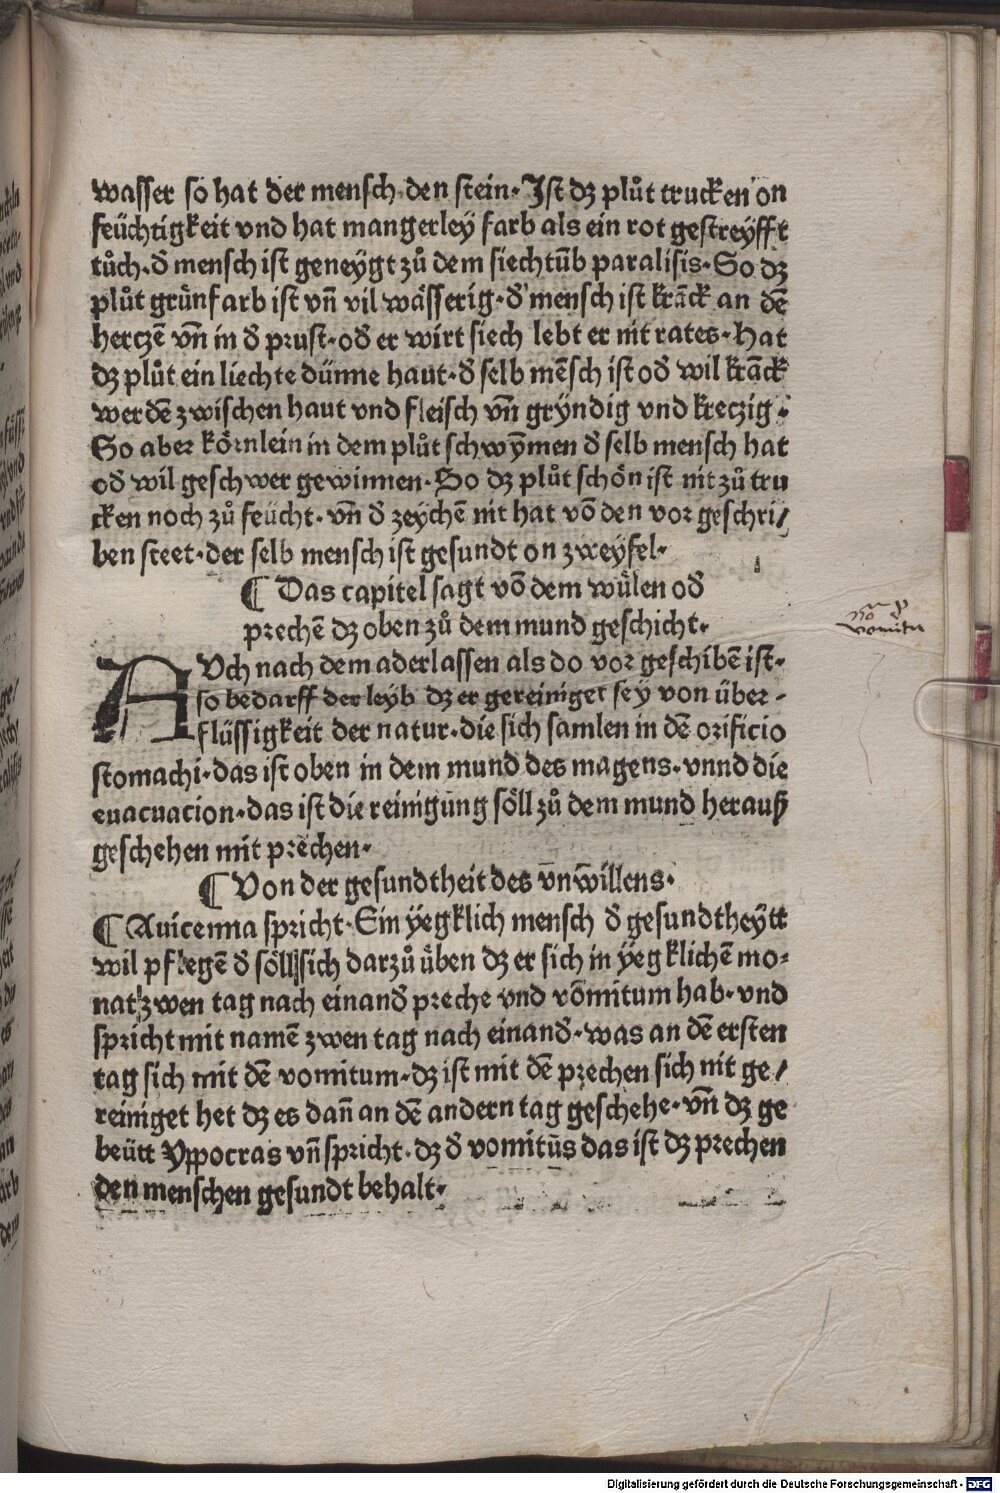 wasser so hat der mensch den stein. Ist dz plůt trucken on
feüchtigkeit vnd hat mangerley farb als ein rot gestreyfft
tůch. d̄ mensch ist geneygt zů dem siechtūb paralisis. So dz
plůt grünfarb ist vn̄ vil wässerig. d̄ mensch ist krāck an dē
hertzē vn̄ in d̄ prust. od̄ er wirt siech lebt er nit rates. Hat
dz plůt ein liechte dünne haut. d̄ selb mēsch ist od̄ wil krāck
werdē zwischen haut vnd fleisch vn̄ gryndig vnd kreczig.
So aber körnlein in dem plůt schwȳmen d̄ selb mensch hat
od̄ wil geschwer gewinnen. So dz plůt schön ist nit zů tru
cken noch zů feücht. vn̄ d̄ zeychē nit hat vō den vor geschri/
ben steet. der selb mensch ist gesundt on zweyfel.
¶ Das capitel sagt vō dem wülen od̄
prechē dz oben zů dem mund geschicht.
AVch nach dem aderlassen als do vor geschibē ist.
so bedarff der leyb dz er gereiniget sey von über-
flüssigkeit der natur. die sich samlen in dē orificio
stomachi. das ist oben in dem mund des magens. vnnd die
euacuacion. das ist die reinigung söll zů dem mund herauß
geschehen mit prechen.
¶ Von der gesundtheit des vn̄willens.
¶ Auicenna spricht. Ein yegklich mensch d̄ gesundtheytt
wil pflegē d̄ söll sich darzů üben dz er sich in yegklichē mo-
nat zwen tag nach einand̄ preche vnd vōmitum hab. vnd
spricht mit namē zwen tag nach einand̄. was an dē ersten
tag sich mit dē vomitum. dz ist mit dē prechen sich nit ge/
reiniget het dz es dan̄ an dē andern tag geschehe. vn̄ dz ge
beütt Yppocras vn̄ spricht. dz d̄ vomitūs das ist dz prechen
den menschen gesundt behalt.
vomitu
Digitalisierung gefördert durch die Deutsche Forschungsgemeinschaft - DFG